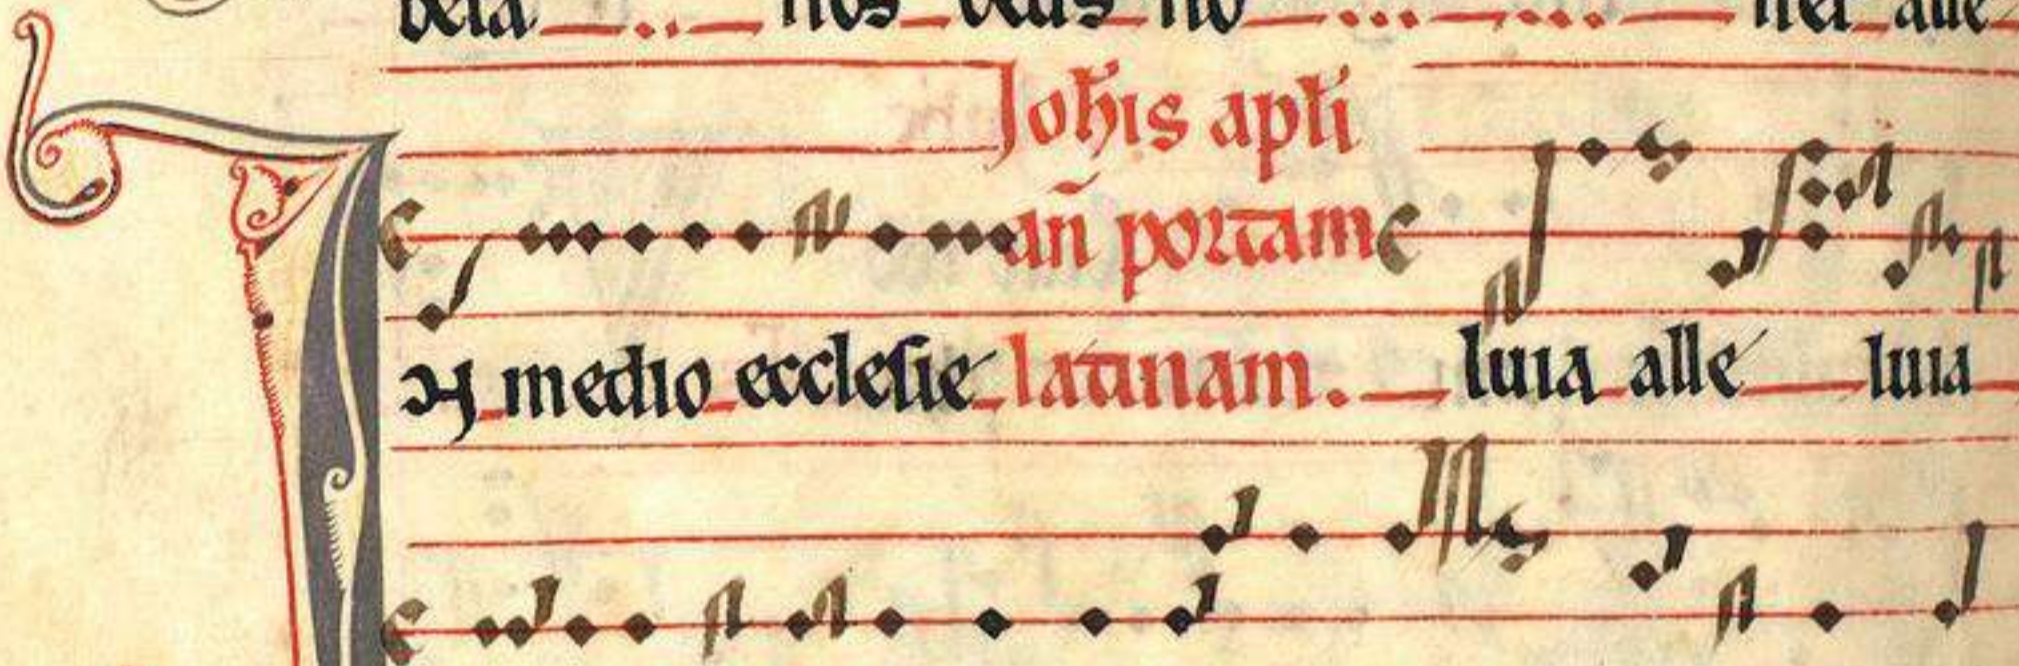 nos deus no
Joħis apłi
an̄ portam
IN medio ecclesie latinam. luia alle luia